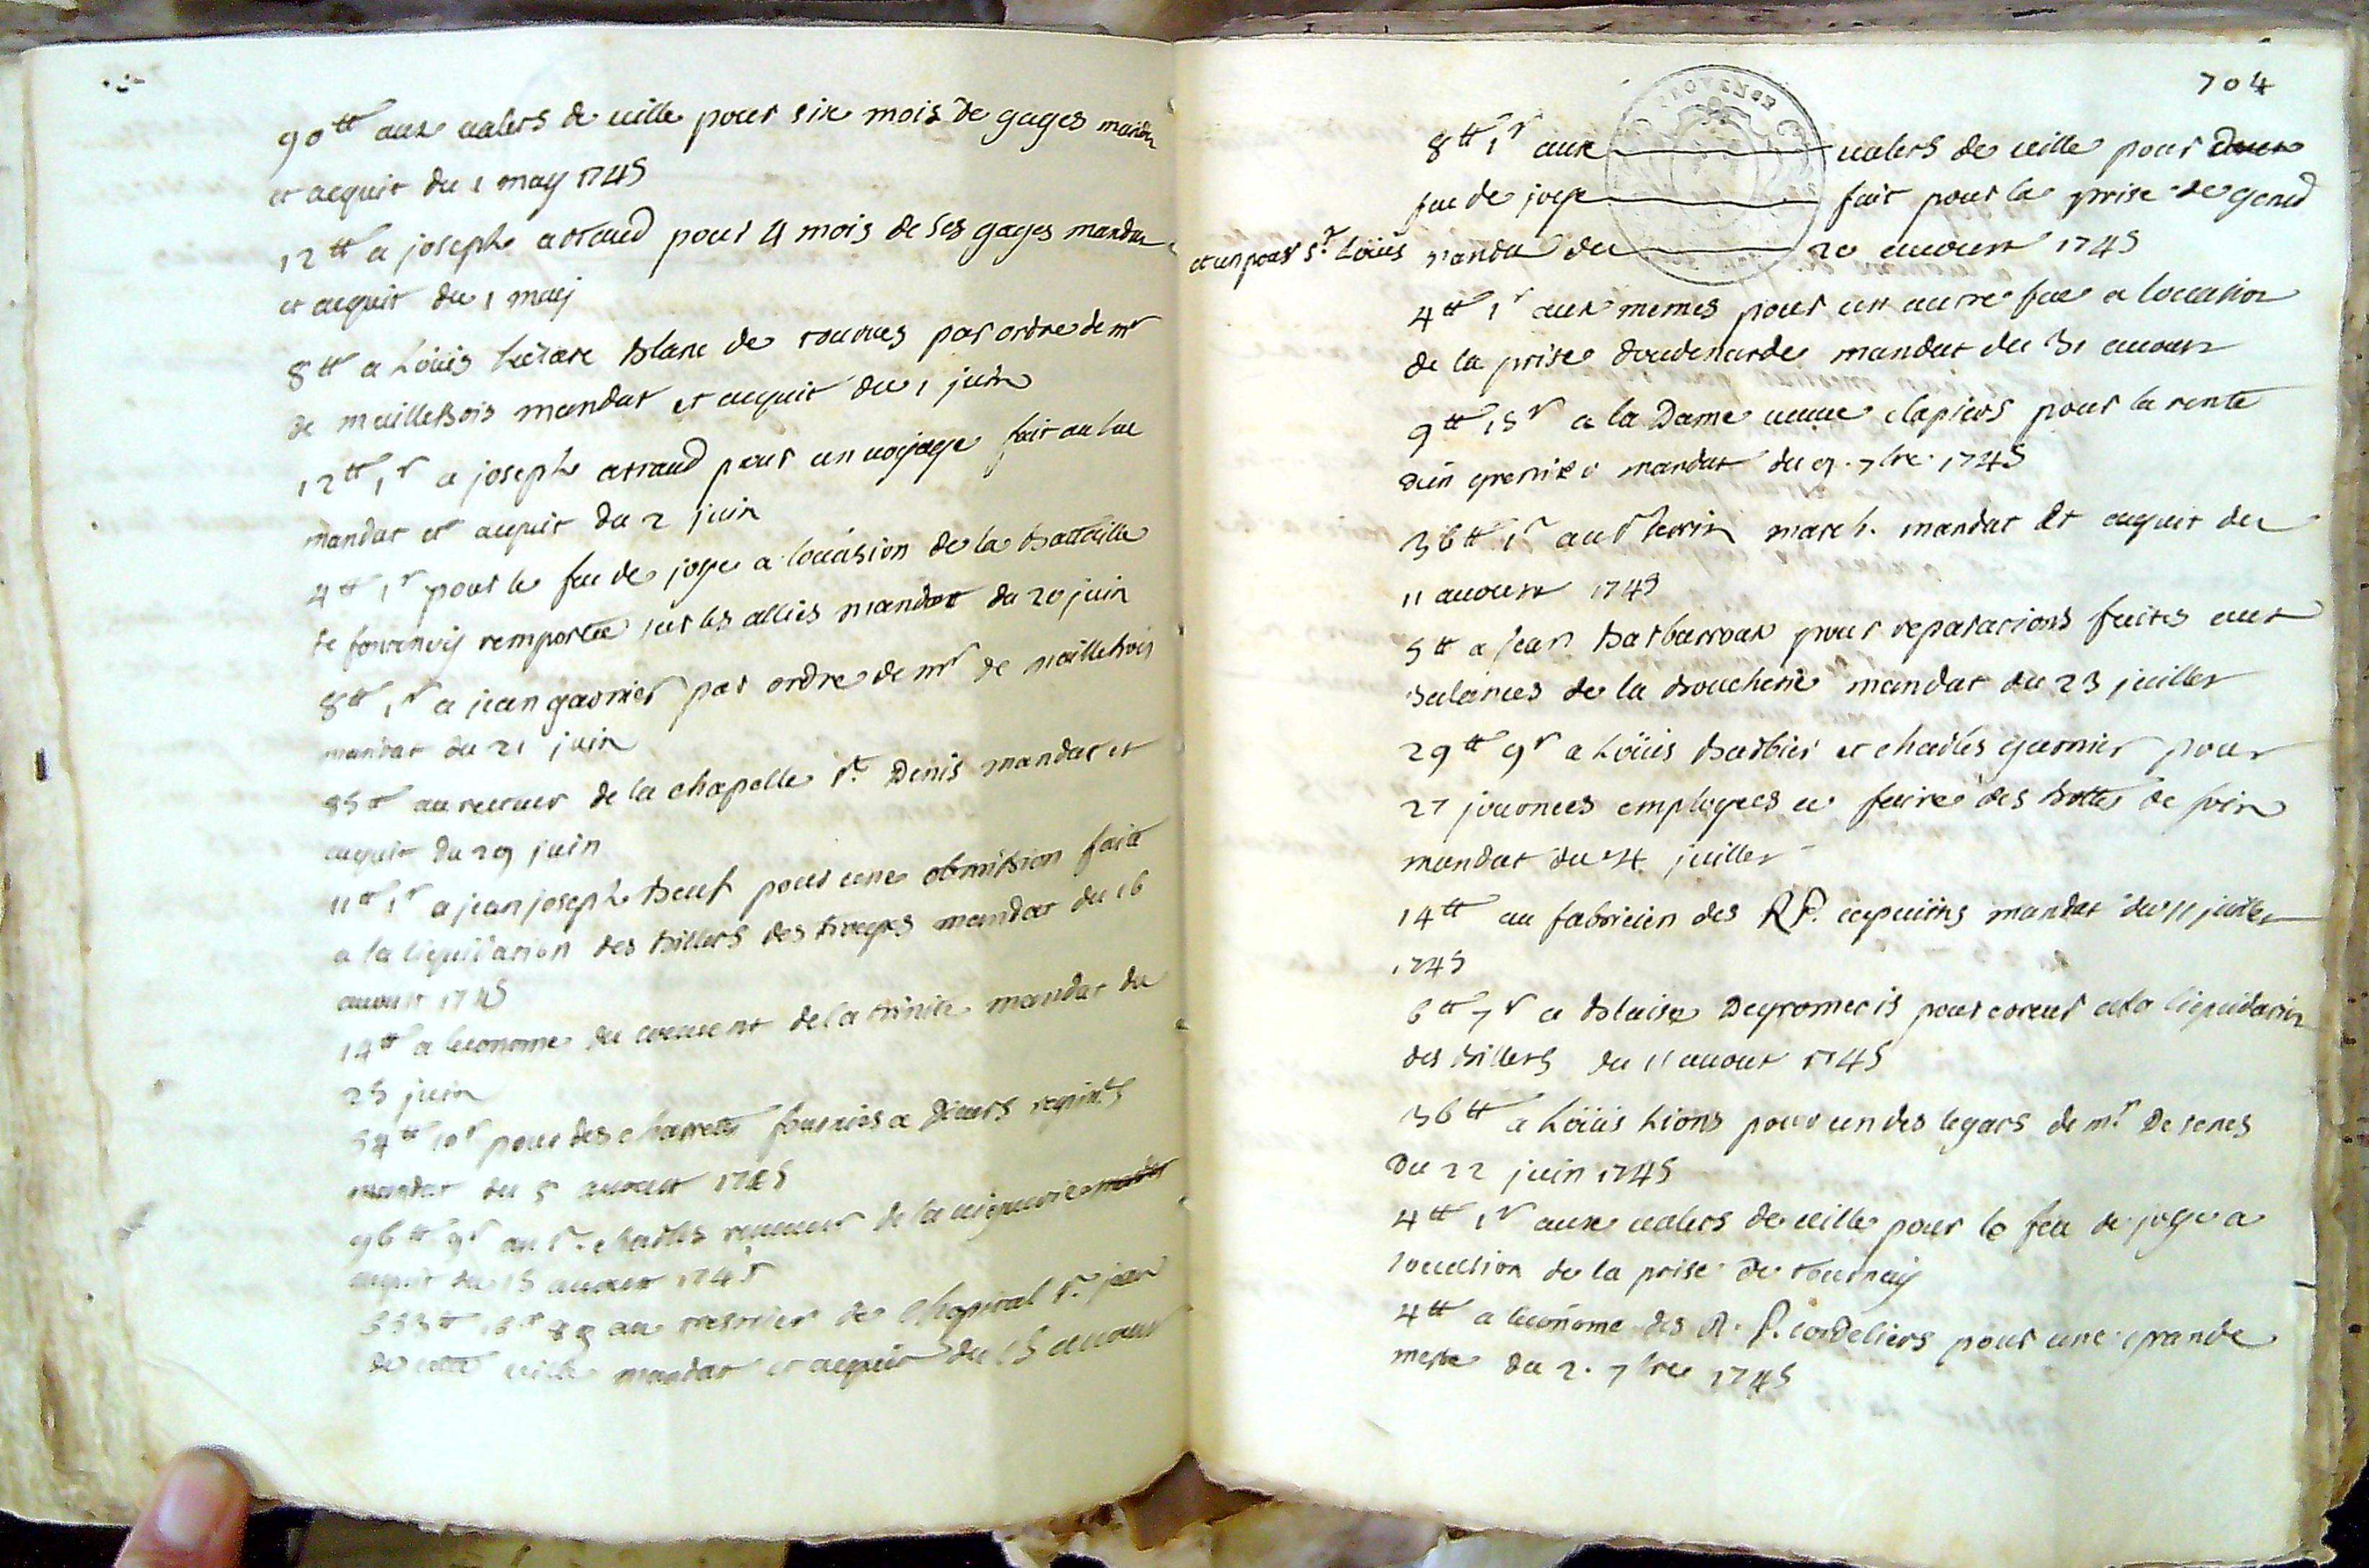 90 tt aux valets de ville pour six mois de gages mandat
et acquit du 1 may 1745
12 tt a joseph attaud pour 4 mois de ses gages mandat
et acquit du 1 maij
8 tt a Loüis blanc de par ordre de mr
de maillebois mandat et acquit du 1 juin
12 tt 1 s a joseph attaud pour un voyage fait au luc
mandat et acquit du 2 juin
4 tt 1 s pour le feu de joye a loccasion de la battaille
de fontenoij remportée sur les alliés mandat du 20 juin
8 tt 1 s a jean garnier par ordre de mr de maillebois
mandat du 21 juin
85 tt au recteur de la chapelle st Denis mandat et
acquit du 29 juin
11 tt 1 s a jean joseph beuf pour une obmission faite
a la liquidation des billets des troupes mandat du 16
avoust 1745
14 tt a leconome du couvent de la trinité mandat du
25 juin
54 tt 10 s pour des charrettes fournies a divers regimts
mandat du 5 avoust 1745
96 tt 9 s au sr. charles receveur de la viguerie mandat
acquit du 15 avoust 1745
333 tt 16 s 8 d au tresorier de lhopital st. jean
de cette ville mandat et acquit du 15 avoust
704
PROVENCE
8 tt 1 s aux valets de ville pour deux
feu de joye fait pour la prise de gand
et un pour st. Loüis mandat du 20 avoust 1745
4 tt 1 s aux memes pour un autre feu a locasion
de la prise doudenarde mandat du 31 avoust
9 tt 15 s a la Dame veuve clapiers pour la rente
dun grenier mandat du 9. 7bre. 1745
36 tt 1 s au sr march. mandat et acquit du
11 avoust 1745
5 tt a jean barbarroux pour reparations faites aux
balances de la boucherie mandat du 23 juillet
29 tt 9 s a Loüis barbier et charles garnier pour
27 journées employées a faire des bottes de foin
mandat du 4 juillet
14 tt au fabricien des RP. capucins mandat du 11 juillet
1745
6 tt 7 s a blaise Degromeris pour erreur a la liquidation
des billets du 11 avout 1745
36 tt a Loüis Lions pour un des legats de mr. De senes
Du 22 juin 1745
4 tt 1 s aux valets de ville pour le feu de joye a
locasion de la prise de tournaij
4 tt a leconome des R. P. cordeliers pour une grande
messe du 2. 7bre 1745